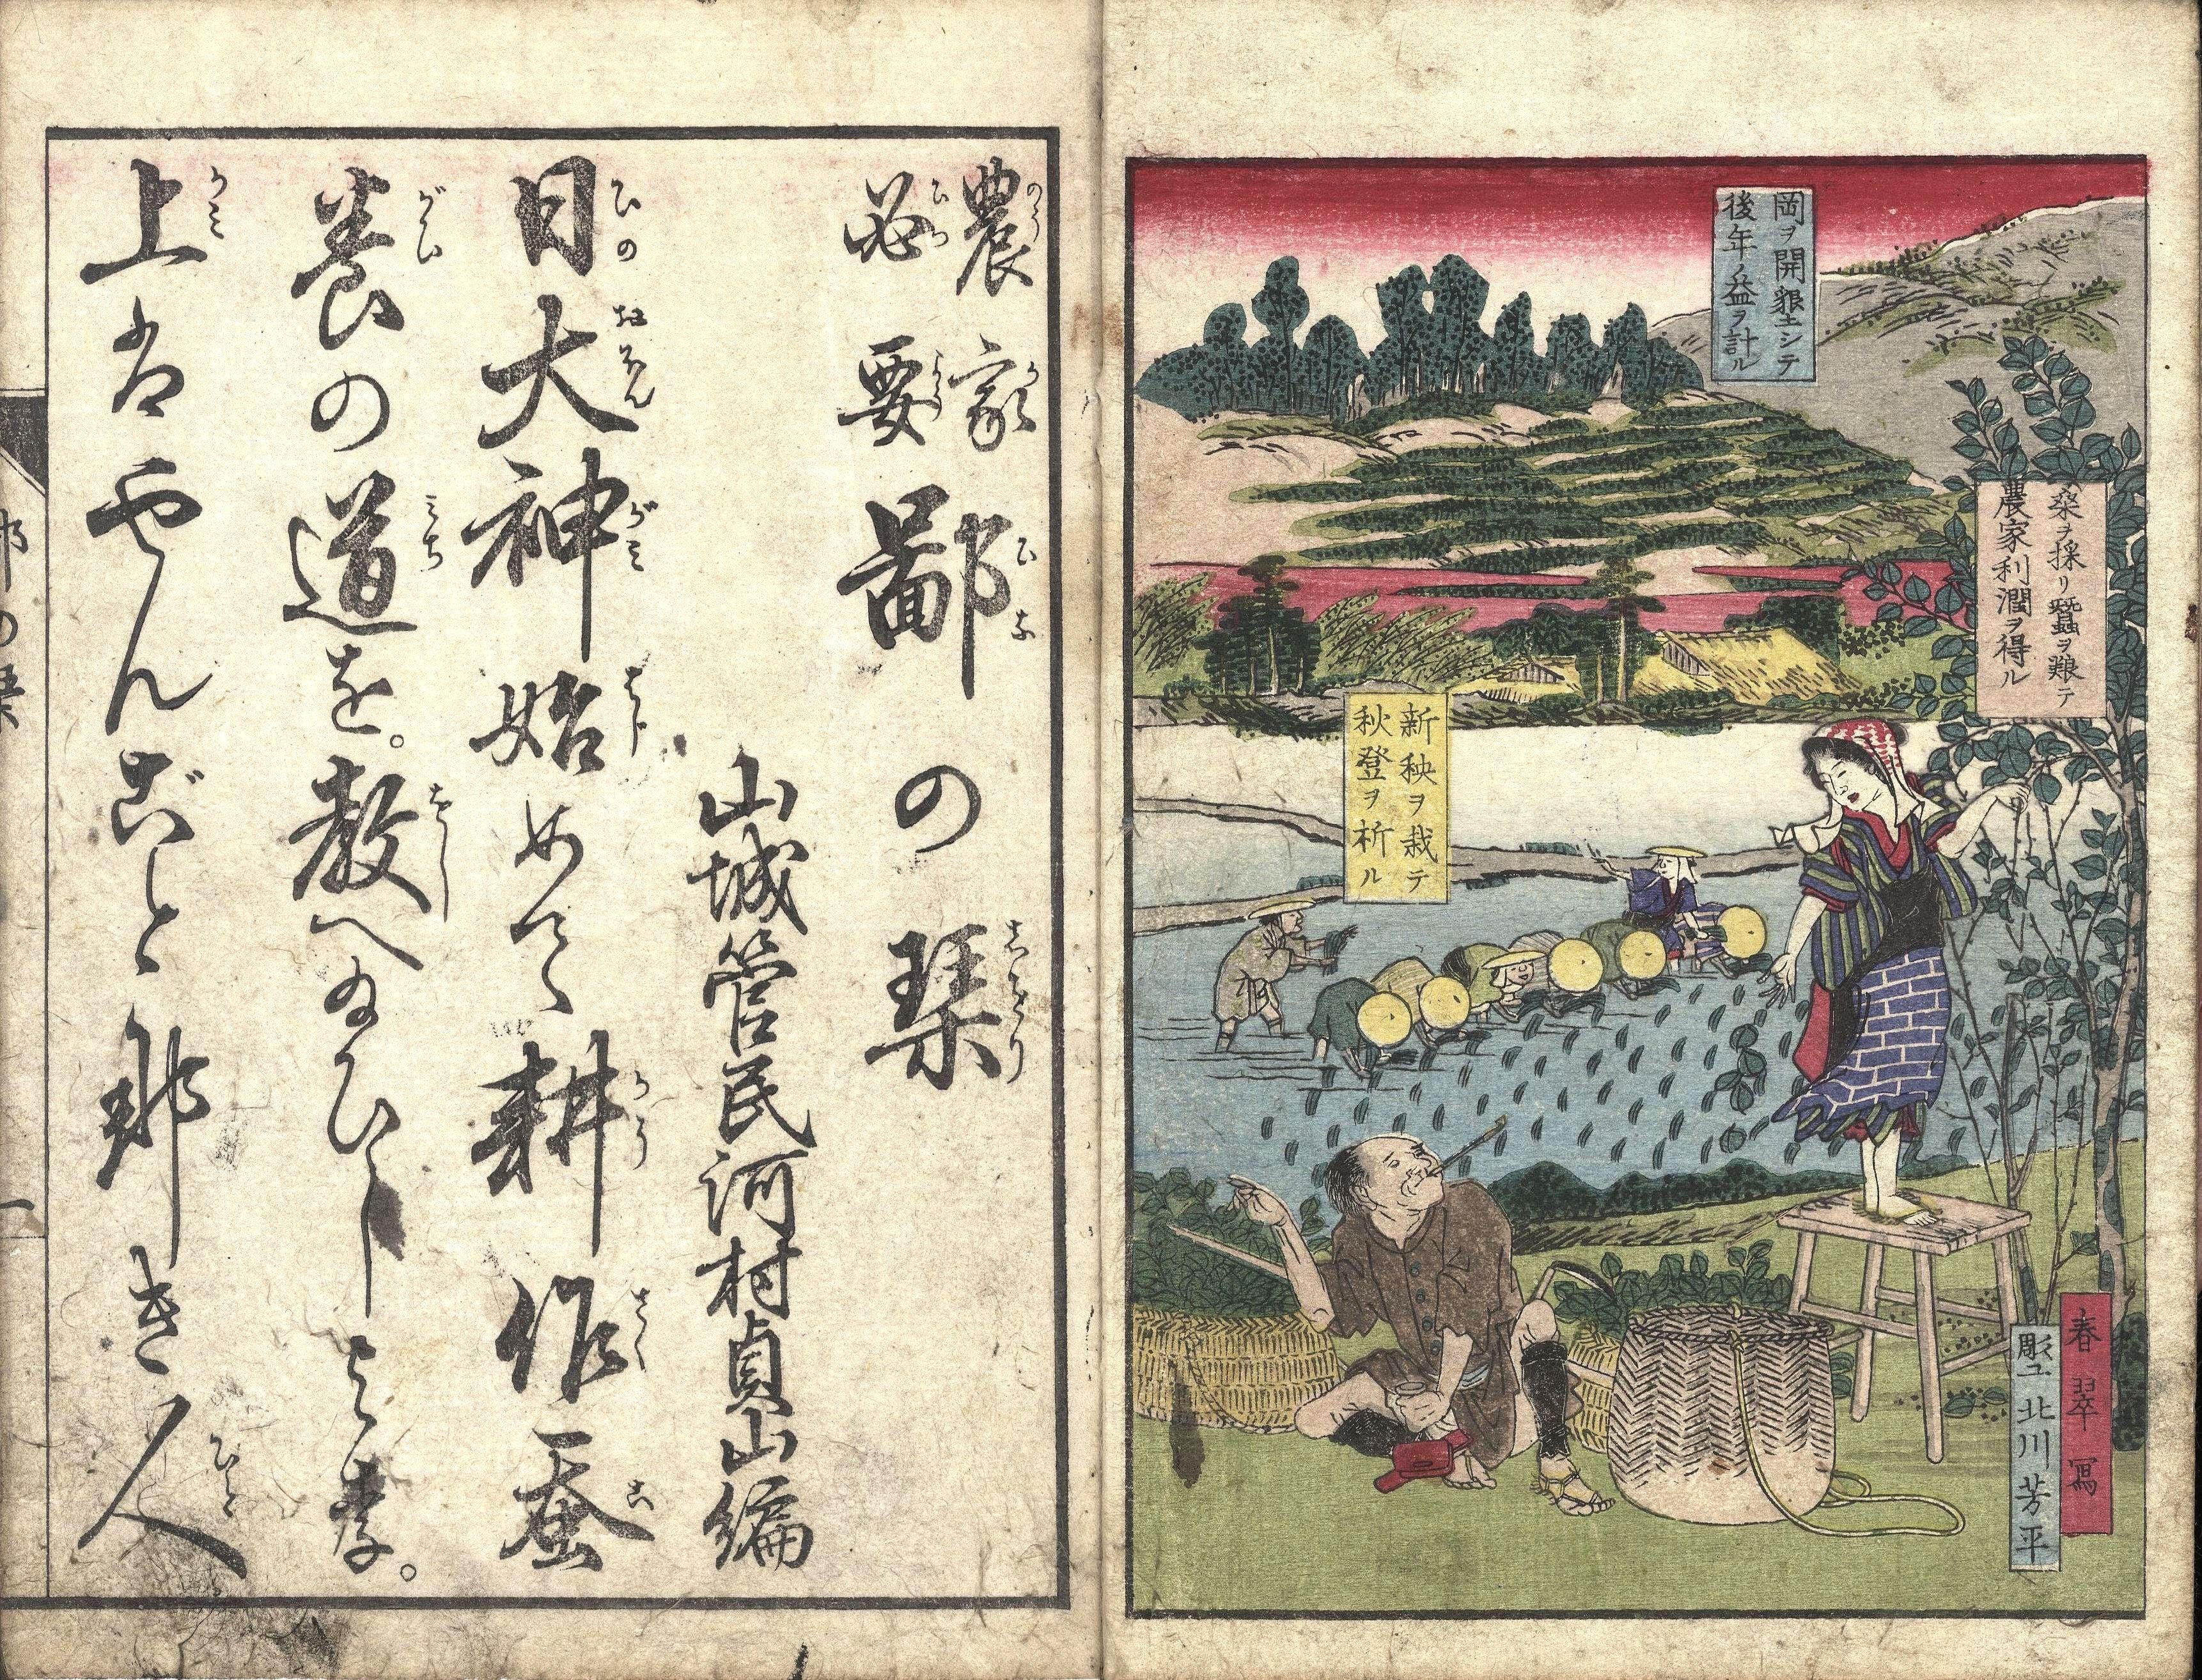 岡ヲ開墾シテ
後年ノ益ヲ計ル
桑ヲ採リ蠶ヲ粮テ
農家利潤ヲ得ル
新秧ヲ栽テ
秋登ヲ祈ル
春翠寫
彫工北川芳平
農家
必要
鄙の栞
山城管民河村貞山編
日大神始めて耕作蚕
養の道を。教へ給ひし
上はやんごと那き人
鄙の栞 一